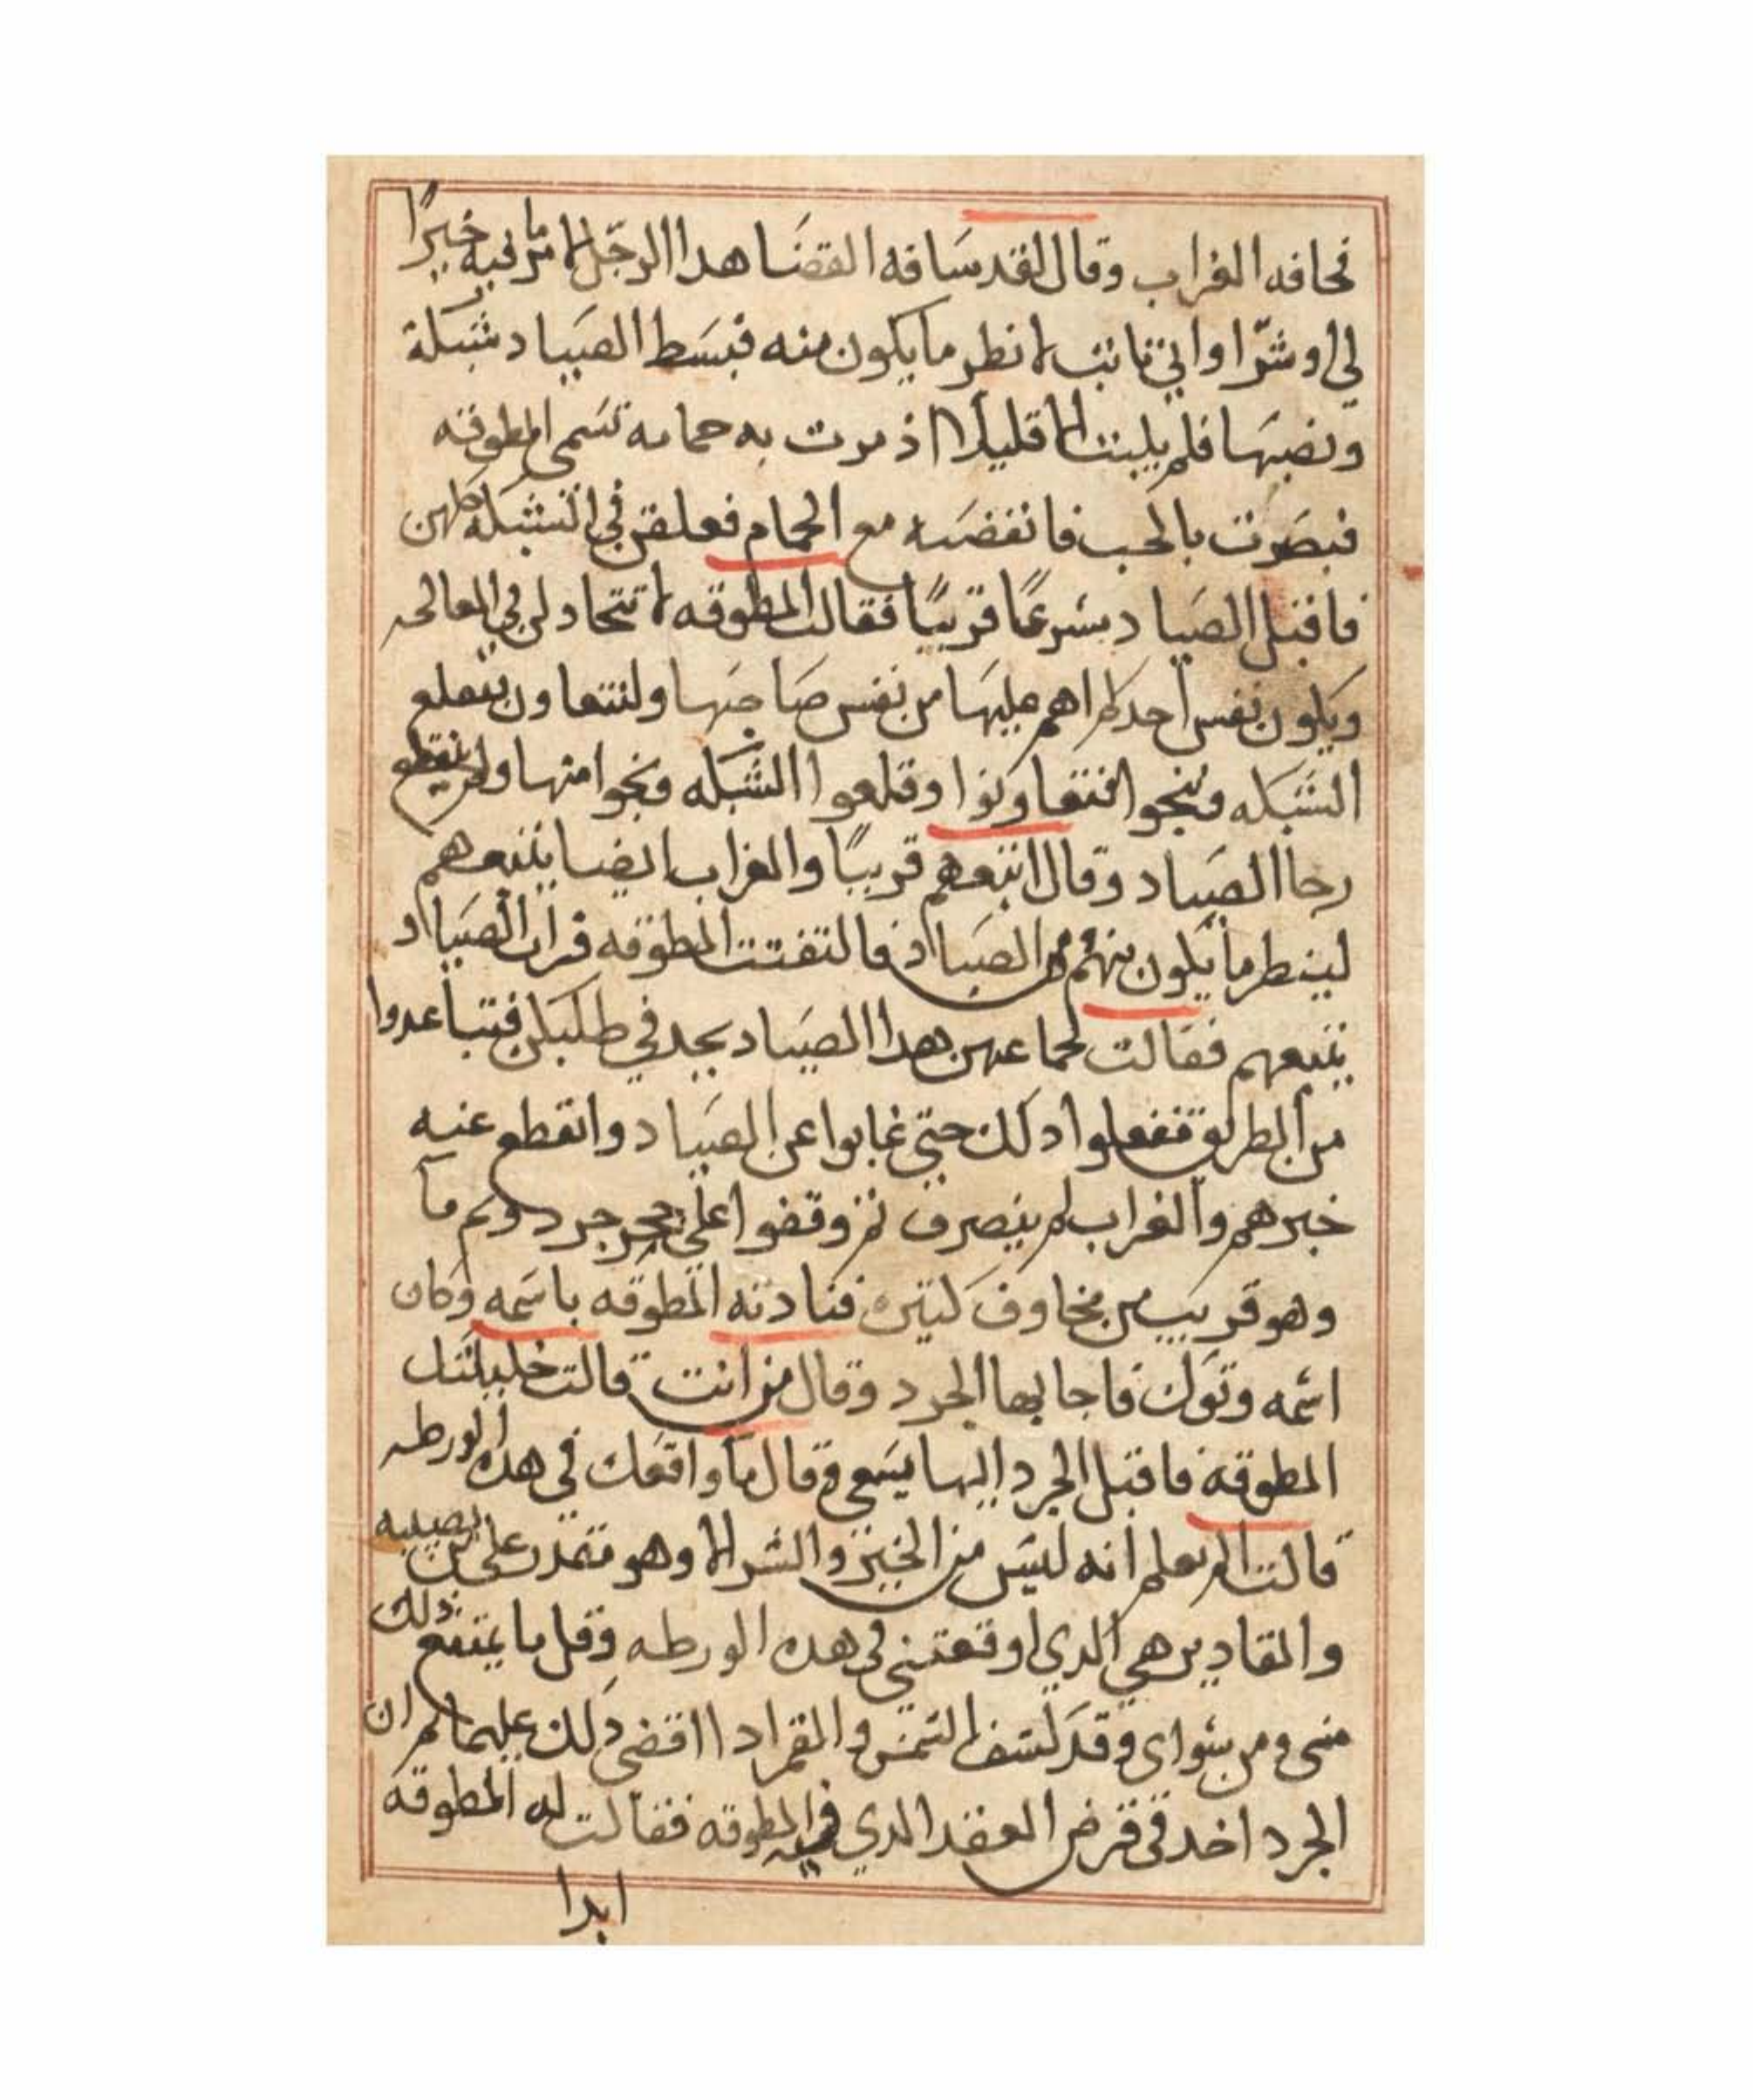 فخافه الغراب وقال لقد ساقه القضا هدا الرجل لامر ما فيه خيرًا
لي او شرّا واني ثابت لانظر ما يكون منه فبسط الصياد شبكة
ونصبها فلم يلبث الا قليلًا اذ مرت به حمامه تسمى المطوقه
فبصرت بالحب فانقضه مع الحمام فعلقن في الشبكه كلهن
فاقبل الصياد مسرعًا قريبًا فقالت المطوقه لا تتحادلن في المعالجه
ويكون نفس احدكم اهم عليها من نفس صاحبها ولنتعاون بنقلع
الشبكه وننجوا فتعاونوا وقلعوا الشبكه ونجوا منها ولم ينقطع
رجا الصياد وقال اتبعهم قريبًا والغراب ايضا يتبعهم
لينظر ما يكون منهم من الصياد فالتفتت المطوقه فرات الصياد
يتبعهم فقالت لجماعهن هدا الصياد يجد في طلبكن فتباعدوا
من الطريق ففعلوا دلك حتى غابوا عن الصياد وانقطع عنه
خبرهم والغراب لم ينصرف ثم وقفوا على جحر جرد وثم مآ
وهو قريب من مخاوف كثيره فنادته المطوقه باسمه وكان
اسمه وتوك فاجابها الجرد وقال من انت قالت خليلتك
المطوقه فاقبل الجرد اليها يسعى وقال ما واقعك في هده الورطه
قالت الم تعلم انه ليس من الخير والشر الا وهو مقدر على من يصيبه
والمقادير هي الدي اوقعتني في هده الورطه وقل ما يمتنع دلك
منى ومن سواى وقد كسف الشمس والقمر ادا اقضى دلك عليهما ثم ان
الجرد اخد في قرض العقد الدي فيه المطوقه فقالت له المطوقه
ابدا